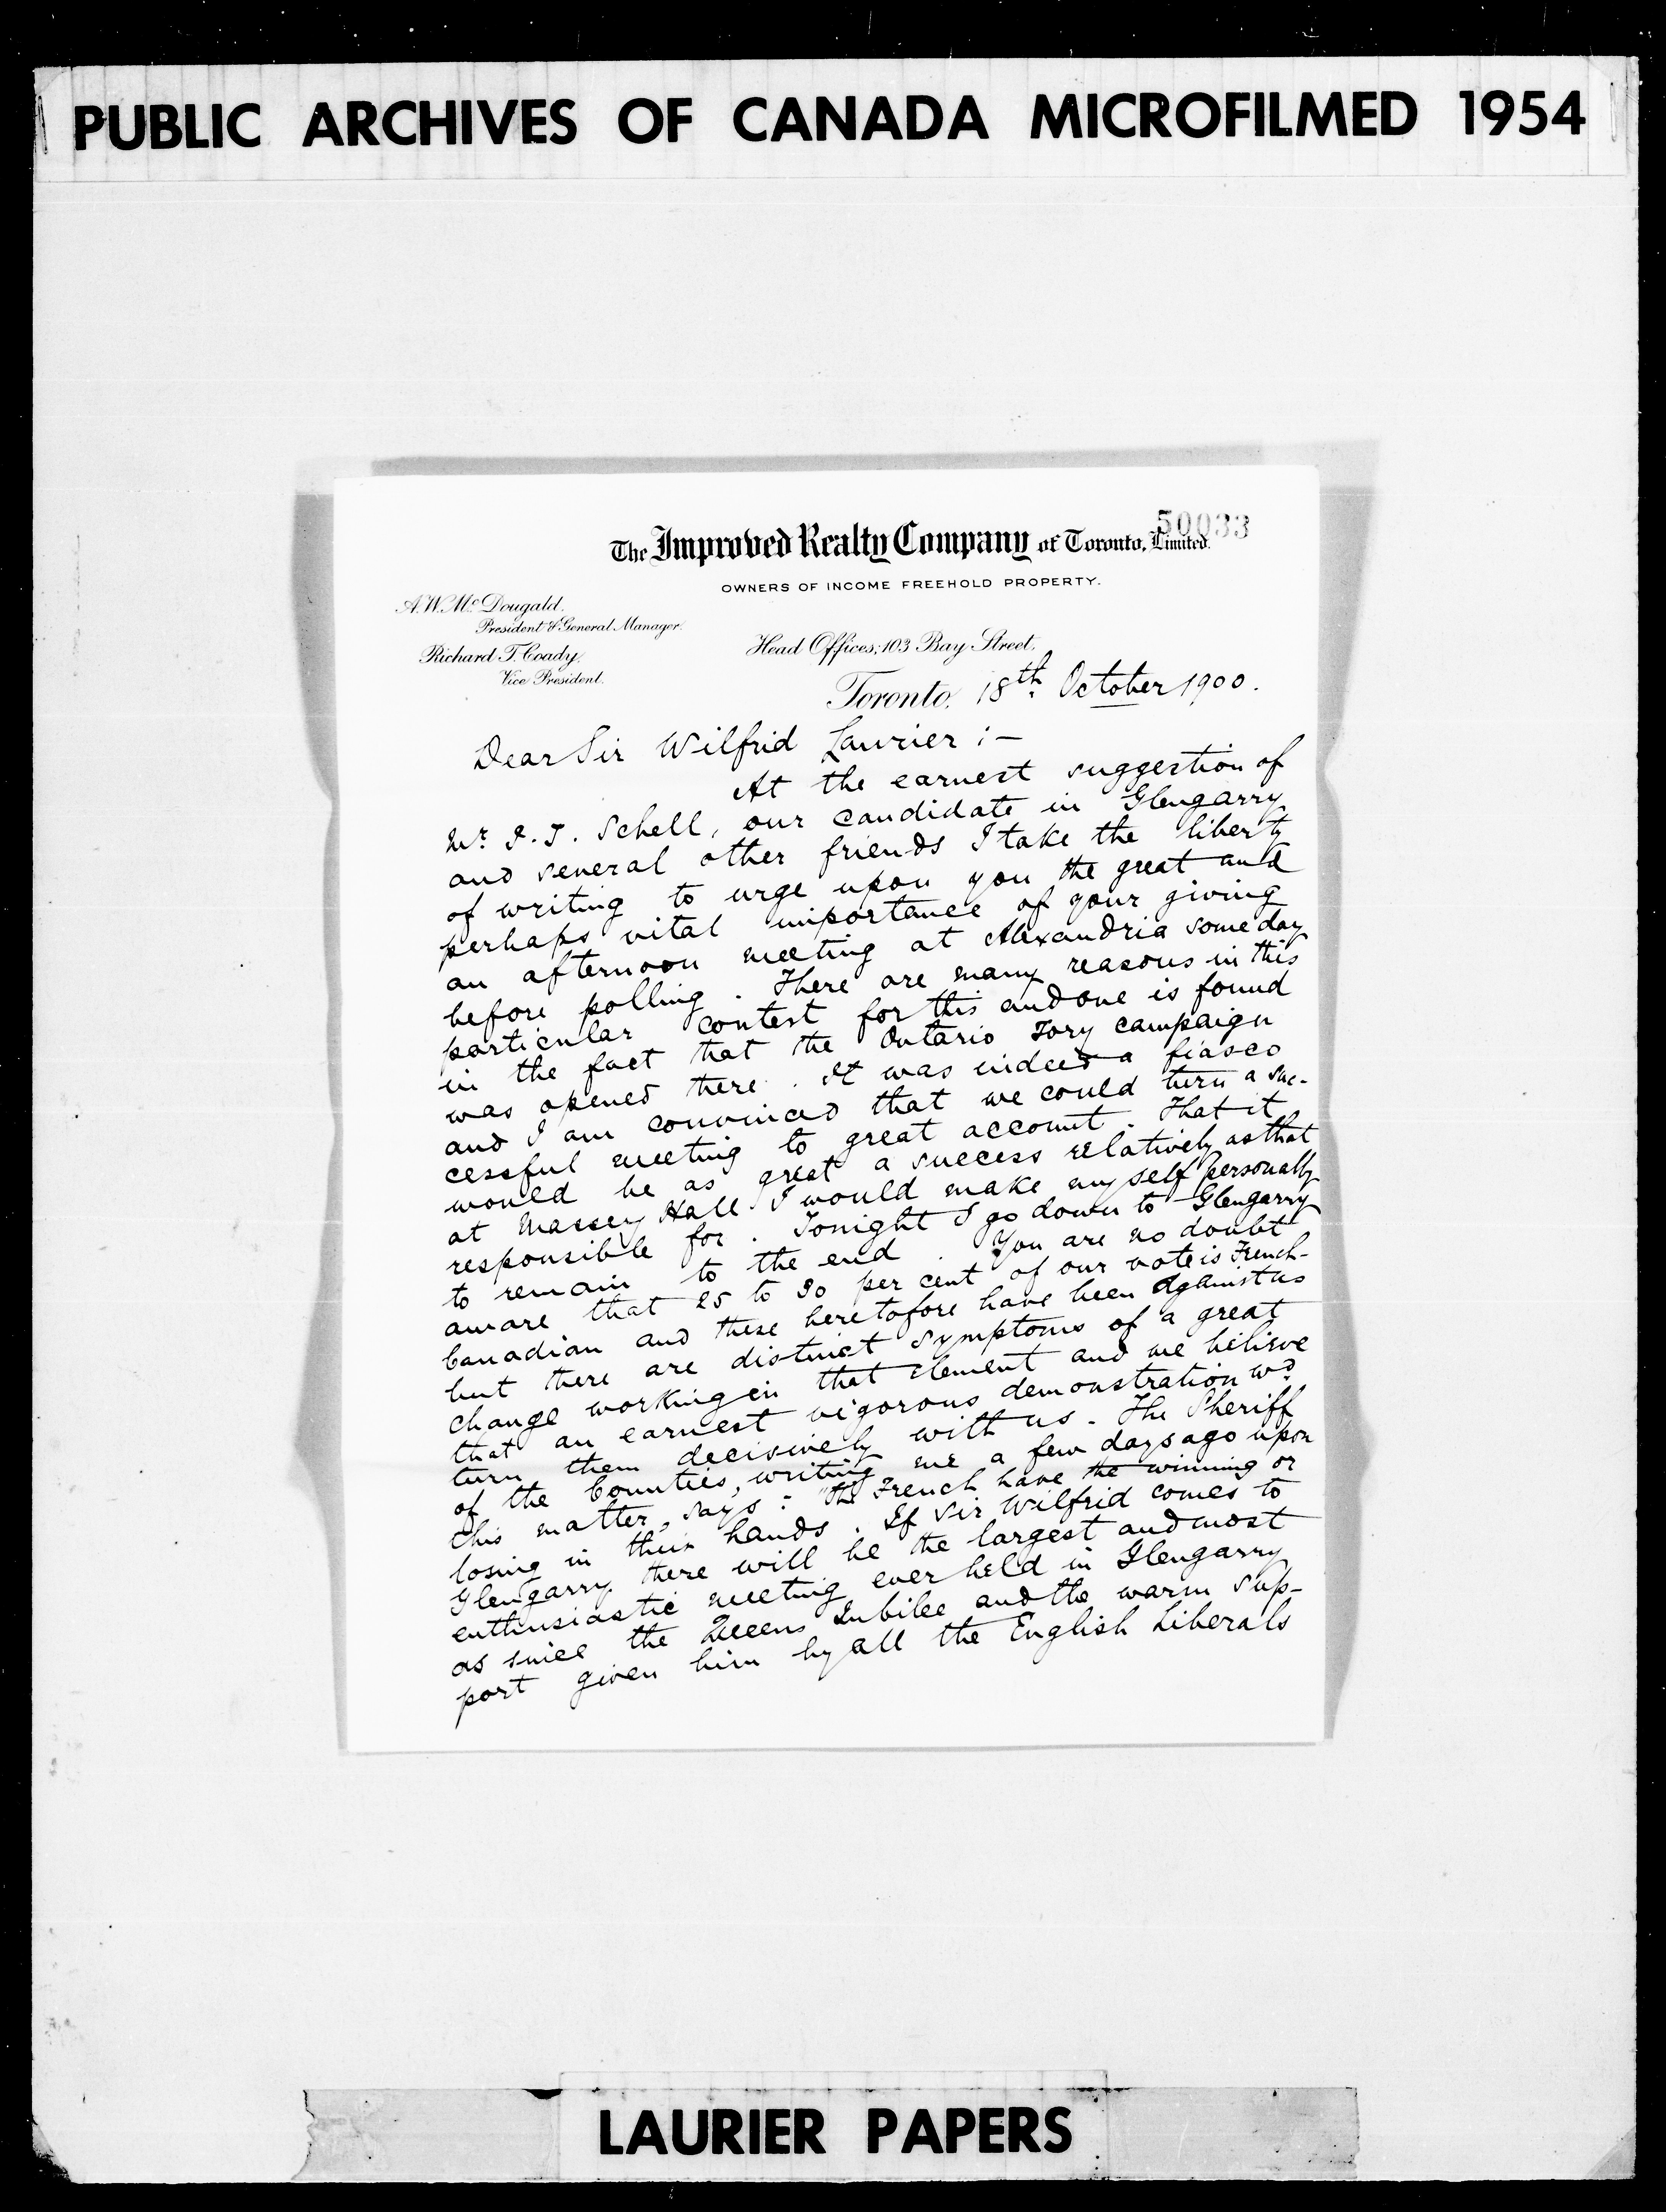 PUBLIC ARCHIVES OF CANADA MICROFILMED 1954
50033
The Improved Realty Company of Toronto, Limited.
OWNERS OF INCOME FREEHOLD PROPERTY.
A. W. McDougald,
President & General Manager.
Richard T. Coady,
Vice President.
Head Offices; 103 Bay Street,
Toronto, 18th October 1900.
Dear Sir Wilfrid Laurier :—
At the earnest suggestion of
Mr J. T. Schell, our candidate in Glengarry
and several other friends I take the liberty
of writing to urge upon you the great and
perhaps vital importance of your giving
an afternoon meeting at Alexandria some day
before polling. There are many reasons in this
particular contest for this and one is found
in the fact that the Ontario Tory campaign
was opened there. It was indeed a fiasco
and I am convinced that we could turn a suc-
cessful meeting to great account. That it
would be as great a success relatively as that
at Massey Hall I would make myself personally
responsible for. Tonight I go down to Glengarry
to remain to the end. You are no doubt
aware that 25 to 30 per cent of our vote is French-
Canadian and these heretofore have been against us
but there are distinct symptoms of a great
change working in that element and we believe
that an earnest vigorous demonstration wd
turn them decisively with us. The Sheriff
of the Counties, writing me a few days ago upon
this matter, says: "The French have the winning or
losing in their hands. If Sir Wilfrid comes to
Glengarry there will be the largest and most
enthusiastic meeting ever held in Glengarry
as since the Queens Jubilee and the warm sup-
port given him by all the English Liberals
LAURIER PAPERS